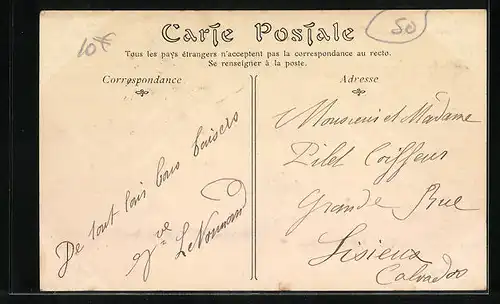 10f
50
Carte Postale
Tous les pays étrangers n'acceptent pas la correspondance au recto.
Se renseigner à la poste.
Correspondance
Adresse
De tout loin bons baisers
Vve LeNormand
Monsieur et Madame
Pilet Coiffeur
Grande Rue
Lisieux
Calvados